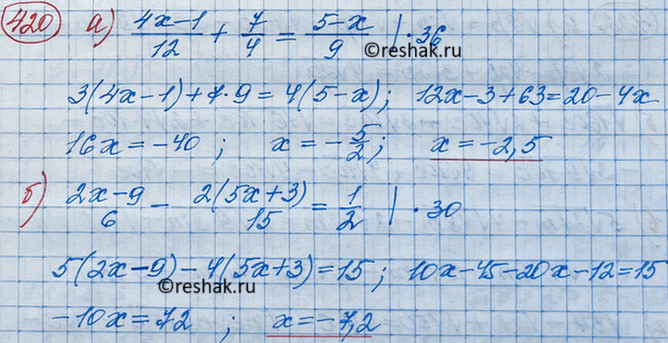 420 а) (4x-1)/12 + 7/4 = (5-x)/9 | ·36
©reshak.ru
3(4x-1)+7·9=4(5-x); 12x-3+63=20-4x
16x=-40 ; x=-5/2; x=-2,5
б) (2x-9)/6 - 2(5x+3)/15 = 1/2 | ·30
5(2x-9)-4(5x+3)=15; 10x-45-20x-12=15
©reshak.ru
-10x=72 ; x=-7,2